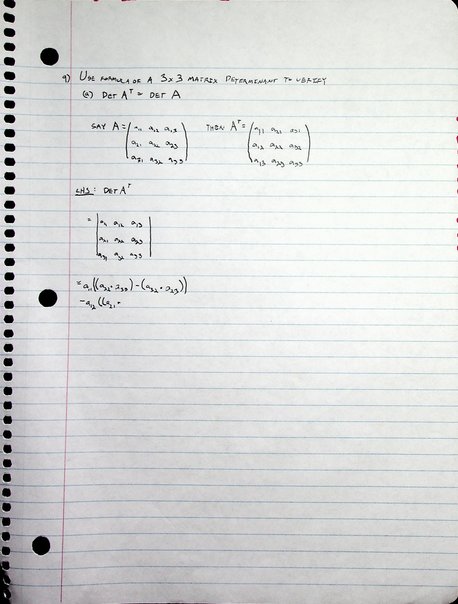 9) USE FORMULA OF A 3x3 MATRIX DETERMINANT TO VERIFY
(a) DET Aᵀ = DET A
SAY A = ( a11 a12 a13 THEN Aᵀ = ( a11 a21 a31
a21 a22 a23 a12 a22 a32
a31 a32 a33 ) a13 a23 a33 )
LHS: DET Aᵀ
= | a11 a12 a13 |
a21 a22 a23
a31 a32 a33
= a11((a22 · a33) - (a32 · a23))
- a12((a21 ·